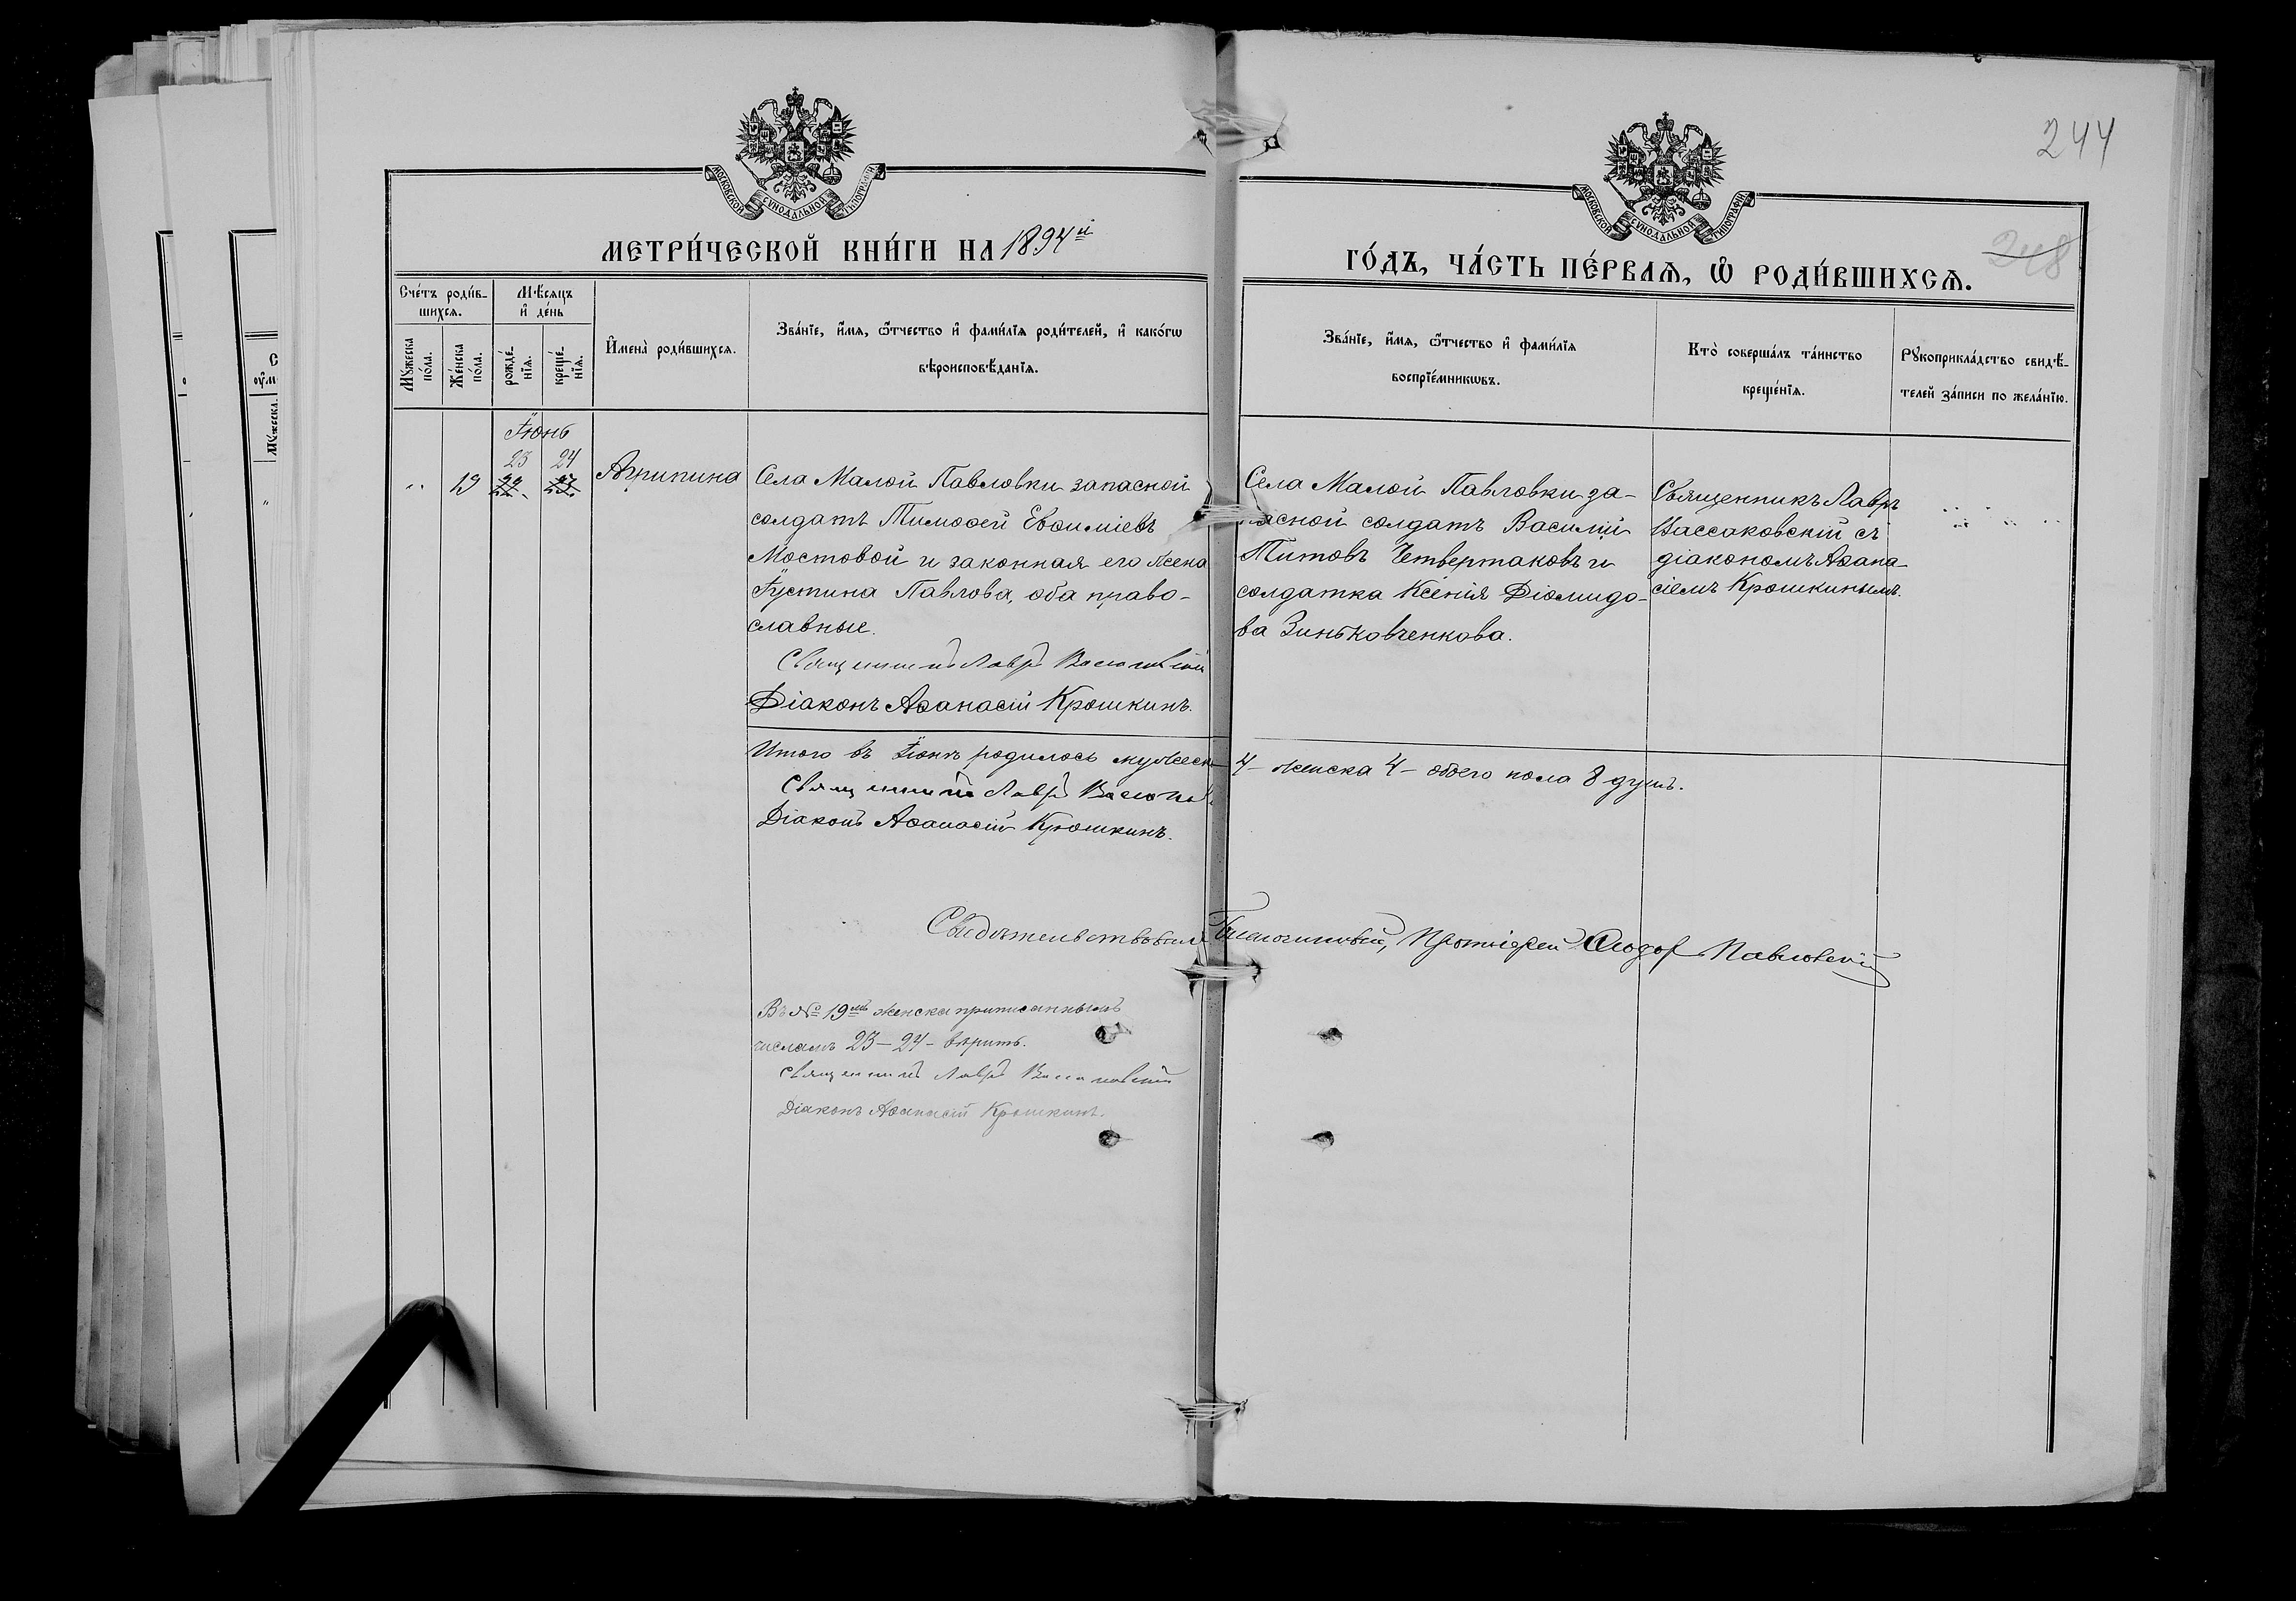 244
248
МОСКОВСКОЙ СѴНОДАЛЬНОЙ ТИПОГРАФІИ
МОСКОВСКОЙ СѴНОДАЛЬНОЙ ТИПОГРАФІИ
МЕТРИ́ЧЕСКОЙ КНИ́ГИ НА 1894й
ГО́ДЪ, ЧА́СТЬ ПЕ́РВАѦ, Ѡ҆ РОДИ́ВШИХСѦ.
Сче́тъ роди́в-
шихсѧ.
Мꙋ́жеска по́ла.
Же́нска по́ла.
Мѣ́сѧцъ
и҆ де́нь
рожде́-
нїѧ.
креще́-
нїѧ.
И҆мена̀ роди́вшихсѧ.
Зва́нїе, и҆́мѧ, ѻ҆́тчество и҆ фами́лїѧ роди́телей, и҆ како́гѡ
вѣроисповѣ́данїѧ.
Зва́нїе, и҆́мѧ, ѻ҆́тчество и҆ фами́лїѧ
воспрїе́мникѡвъ.
Кто̀ соверша́лъ та́инство
креще́нїѧ.
Рꙋкоприкла́дство свидѣ́-
телей за́писи по жела́нїю.
Іюнь
23 24
19
Агрипина
Села Малой Павловки запасной
солдатъ Тимоѳей Евѳиміевъ
Мостовой и законная его жена
Іустина Павлова, оба право-
славные.
Священникъ Лавръ Вассаковскій
Діаконъ Аѳанасій Крошкинъ.
Села Малой Павловки за-
пасной солдатъ Василій
Титовъ Четвертаковъ и
солдатка Ксенія Діомидо-
ва Зиньковченкова.
Священникъ Лавръ
Вассаковскій съ
діакономъ Аѳана-
сіемъ Крошкинымъ.
Итого въ Іюнѣ родилось мужеска 4 – женска 4 – обоего пола 8 душъ.
Священникъ Лавръ
Діаконъ Аѳанасій Крошкинъ.
Свидѣтельствовалъ Благочинный, Протоіерей Ѳеодоръ Павловскій
Въ № 19мъ женска приписаннымъ
числамъ 23 – 24 – вѣрить.
Священникъ Лавръ Вассаковскій
Діаконъ Аѳанасій Крошкинъ.